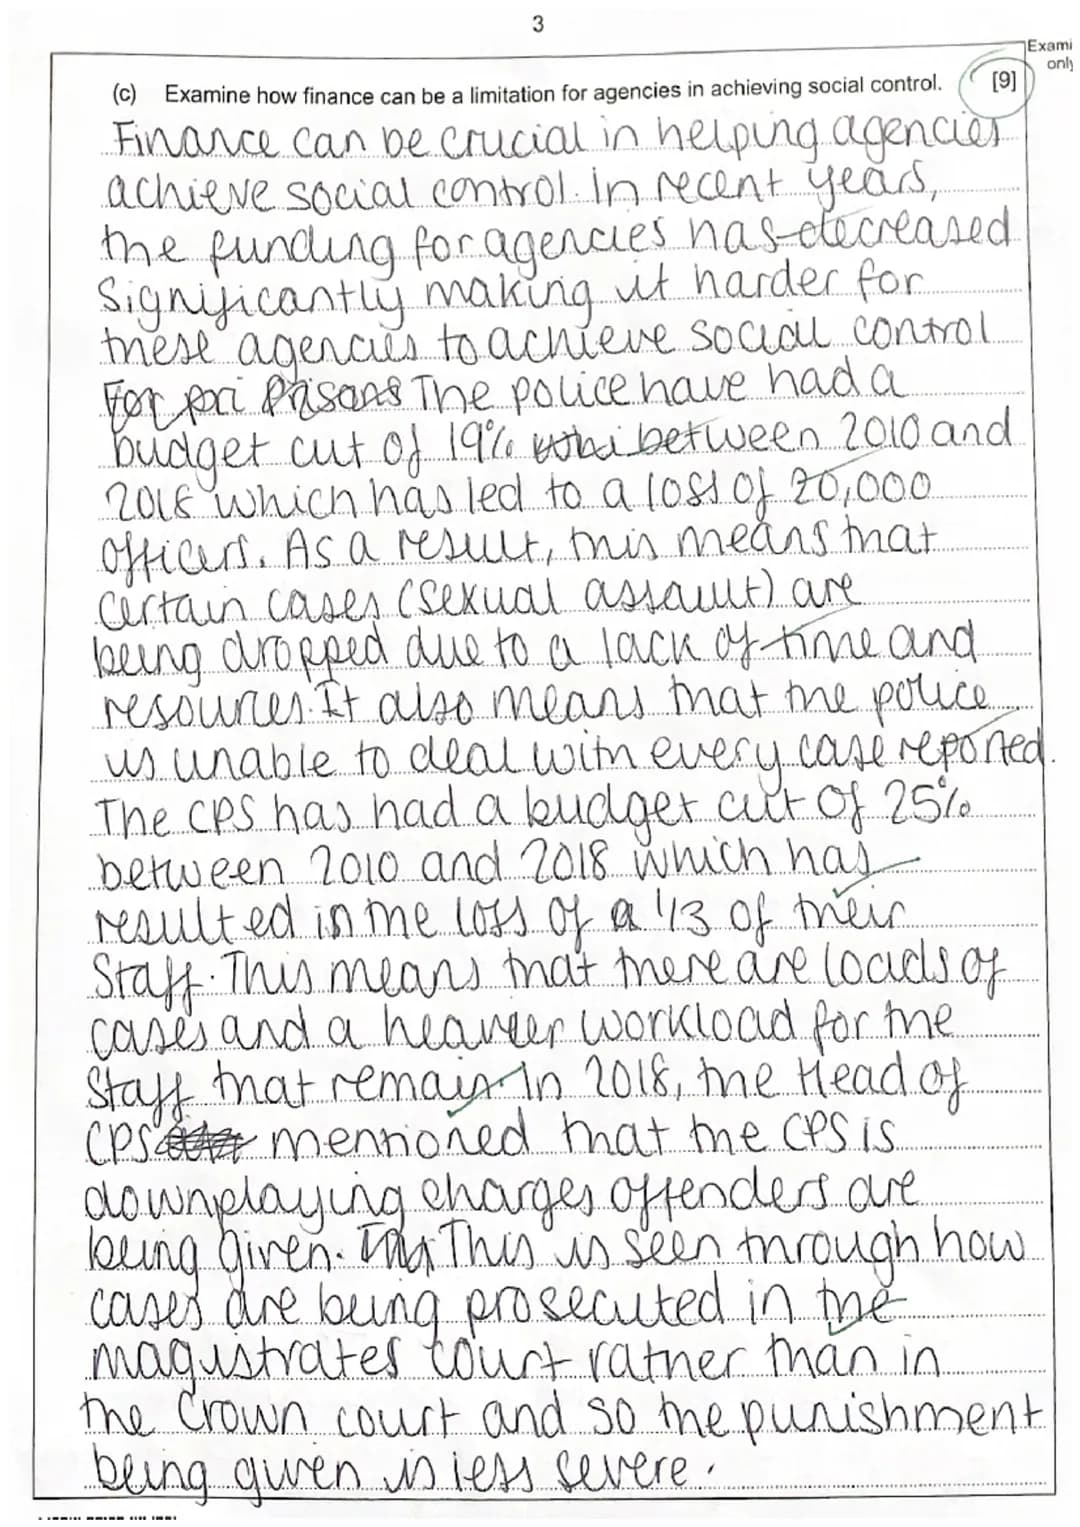 3
Exami
only
(c) Examine how finance can be a limitation for agencies in achieving social control. [9]
Finance can be crucial in helping agencies
achieve social control. In recent years,
the funding for agencies has decreased
significantly making it harder for
these agencies to achieve social control
For pri Prisons The police have had a
budget cut of 19% whi between 2010 and
2018 which has led to a loss of 20,000
officers. As a result, this means that
certain cases (sexual assault) are
being dropped due to a lack of time and
resources. It also means that the police
is unable to deal with every case reported.
The CPS has had a budget cut of 25%
between 2010 and 2018 which has
resulted in the loss of a 1/3 of their
staff. This means that there are loads of
cases and a heavier workload for the
staff that remain. In 2018, the Head of
CPS mentioned that the CPS is
downplaying charges offenders are
being given. This is seen through how
cases are being prosecuted in the
magistrates court rather than in
the Crown court and so the punishment
being given is less severe.